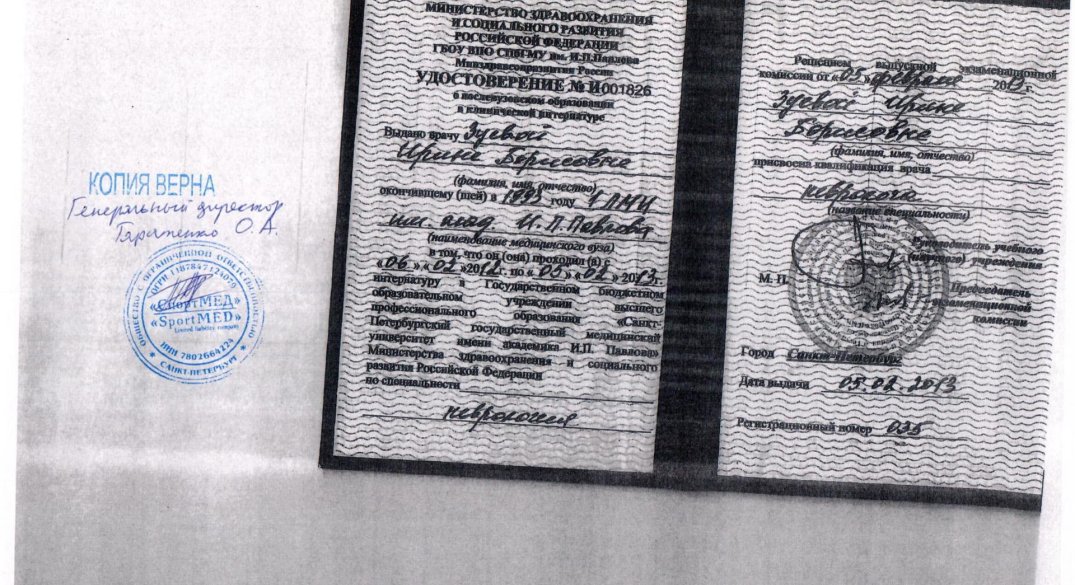 КОПИЯ ВЕРНА
Генеральный директор
О. А.
ОБЩЕСТВО С ОГРАНИЧЕННОЙ ОТВЕТСТВЕННОСТЬЮ
ОГРН 1187847124070
«СпортМЕД»
«SportMED»
Limited liability company
ИНН 7802664224
САНКТ-ПЕТЕРБУРГ
МИНИСТЕРСТВО ЗДРАВООХРАНЕНИЯ
И СОЦИАЛЬНОГО РАЗВИТИЯ
РОССИЙСКОЙ ФЕДЕРАЦИИ
ГБОУ ВПО СПбГМУ им. И.П.Павлова
Минздравсоцразвития России
УДОСТОВЕРЕНИЕ № И001826
о послевузовском образовании
в клинической интернатуре
Выдано врачу Зуевой
Ирине Борисовне
(фамилия, имя, отчество)
окончившему (шей) в 1993 году 1 ЛМИ
им акад И.П.Павлова
(наименование медицинского вуза)
в том, что он (она) проходил (а)
«06» «02» 2012 г. по «05» «02» 2013 г.
интернатуру в Государственном бюджетном
образовательном учреждении высшего
профессионального образования «Санкт-
Петербургский государственный медицинский
университет имени академика И.П. Павлова»
Министерства здравоохранения и социального
развития Российской Федерации
по специальности
неврология
Решением выпускной экзаменационной
комиссии от «05» февраля 2013 г.
Зуевой Ирине
Борисовне
(фамилия, имя, отчество)
присвоена квалификация врача
невролога
(название специальности)
Руководитель учебного
(научного) учреждения
М. П.
Председатель
экзаменационной
комиссии
Город Санкт-Петербург
Дата выдачи 05.02.2013
Регистрационный номер 035